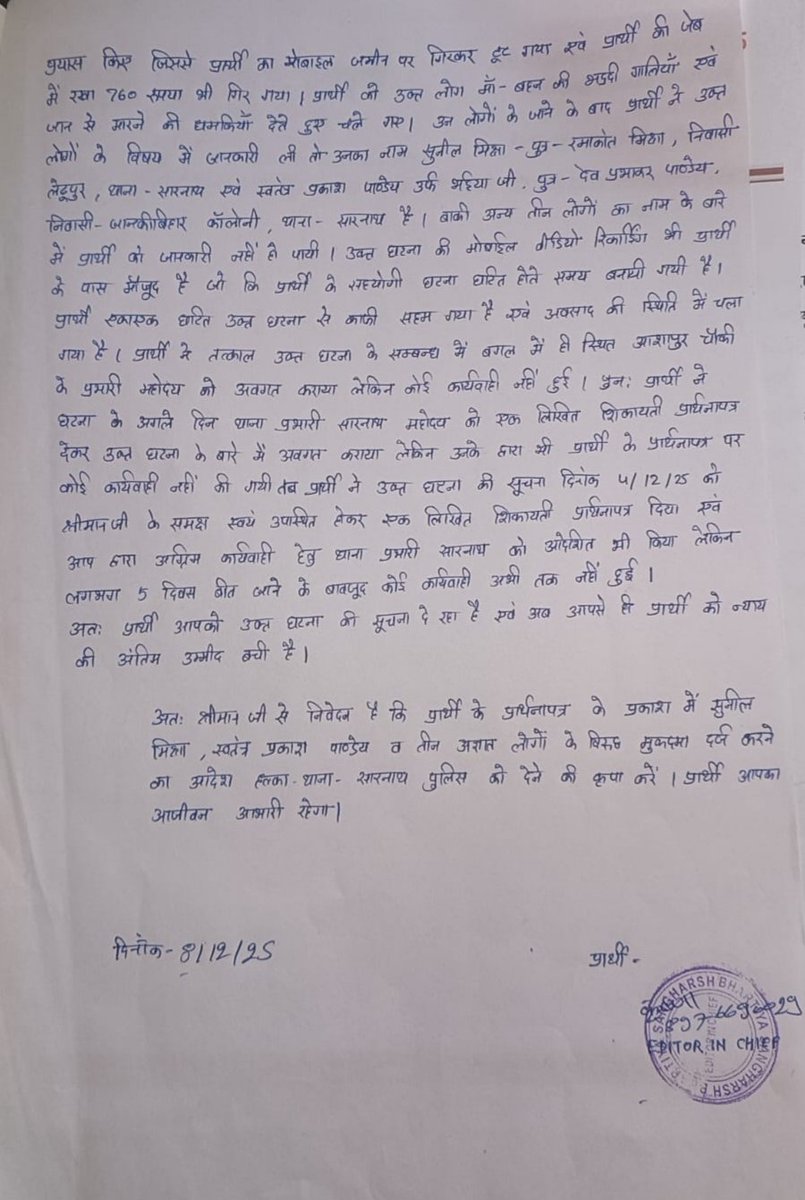 प्रयास किए जिससे प्रार्थी का मोबाइल जमीन पर गिरकर टूट गया एवं प्रार्थी की जेब
में रखा 760 रूपया भी गिर गया। प्रार्थी को उक्त लोग माँ-बहन की भद्दी गालियाँ एवं
जान से मारने की धमकियाँ देते हुए चले गए। उन लोगों के जाने के बाद प्रार्थी ने उक्त
लोगों के विषय में जानकारी ली तो उनका नाम सुनील मिश्रा - पुत्र - रमाकांत मिश्रा, निवासी
लेढूपुर, थाना - सारनाथ एवं स्वतंत्र प्रकाश पाण्डेय उर्फ भईया जी, पुत्र - देव प्रभाकर पाण्डेय,
निवासी - जानकीबिहार कॉलोनी, थाना - सारनाथ है। बाकी अन्य तीन लोगों का नाम के बारे
में प्रार्थी को जानकारी नहीं हो पायी। उक्त घटना की मोबाईल वीडियो रिकार्डिंग भी प्रार्थी
के पास मौजूद है जो कि प्रार्थी के सहयोगी घटना घटित होते समय बनायी गयी है।
प्रार्थी एकाएक घटित उक्त घटना से काफी सहम गया है एवं अवसाद की स्थिति में चला
गया है। प्रार्थी ने तत्काल उक्त घटना के सम्बन्ध में बगल में ही स्थित आशापुर चौकी
के प्रभारी महोदय को अवगत कराया लेकिन कोई कार्यवाही नहीं हुई। पुनः प्रार्थी ने
घटना के अगले दिन थाना प्रभारी सारनाथ महोदय को एक लिखित शिकायती प्रार्थनापत्र
देकर उक्त घटना के बारे में अवगत कराया लेकिन उनके द्वारा भी प्रार्थी के प्रार्थनापत्र पर
कोई कार्यवाही नहीं की गयी तब प्रार्थी ने उक्त घटना की सूचना दिनांक 4/12/25 को
श्रीमान जी के समक्ष स्वयं उपस्थित होकर एक लिखित शिकायती प्रार्थनापत्र दिया एवं
आप द्वारा अग्रिम कार्यवाही हेतु थाना प्रभारी सारनाथ को आदेशित भी किया लेकिन
लगभग 5 दिवस बीत जाने के बावजूद कोई कार्यवाही अभी तक नहीं हुई।
अतः प्रार्थी आपको उक्त घटना की सूचना दे रहा है एवं अब आपसे ही प्रार्थी को न्याय
की अंतिम उम्मीद बची है।
अतः श्रीमान जी से निवेदन है कि प्रार्थी के प्रार्थनापत्र के प्रकाश में सुनील
मिश्रा, स्वतंत्र प्रकाश पाण्डेय व तीन अज्ञात लोगों के विरुद्ध मुकदमा दर्ज करने
का आदेश हल्का-थाना-सारनाथ पुलिस को देने की कृपा करें। प्रार्थी आपका
आजीवन आभारी रहेगा।
दिनांक - 8/12/25
प्रार्थी -
SANGHARSH BHARTIYA SANGHARSH
EDITOR IN CHIEF